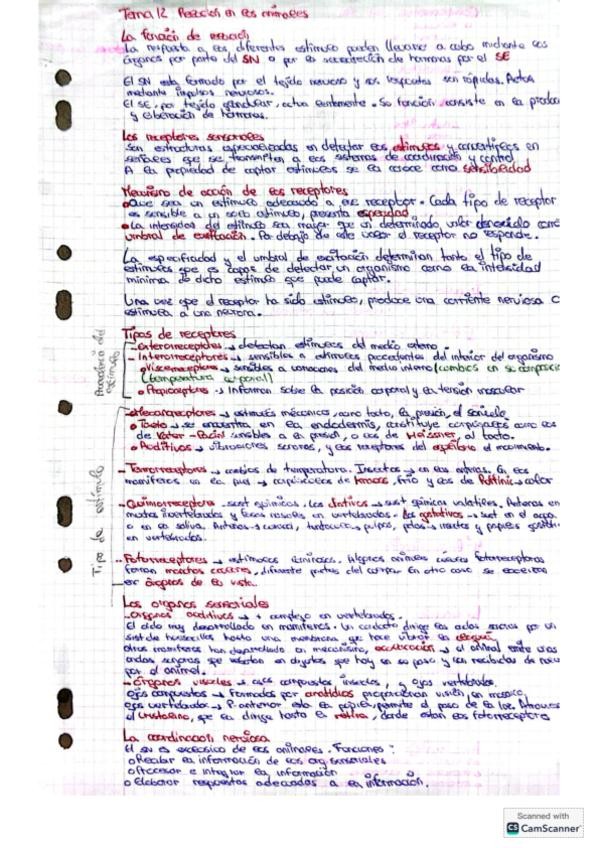 Tema 12 Relación en los animales
La función de relación
La respuesta a los diferentes estímulos pueden llevarse a cabo mediante los
órganos por parte del SN o por la secreción de hormonas por el SE
El SN esta formado por el tejido nervioso y sus respuestas son rápidas. Actúa
mediante impulsos nerviosos.
El SE, por tejido glandular, actua lentamente. Su función consiste en la produc
y liberación de hormonas.
Los receptores sensoriales
Son estructuras especializadas en detectar los estímulos y convertirlos en
señales que se transmiten a los sistemas de coordinación y control
A la propiedad de captar estímulos se la conoce como sensibilidad
Mecanismo de acción de los receptores
Que sea un estímulo adecuado a ese receptor. Cada tipo de receptor
es sensible a un solo estímulo, presenta
La intensidad del estímulo sea mayor que un determinado valor conocido como
umbral de excitación. Por debajo de este valor el receptor no responde.
La especifidad y el umbral de excitación determinan tanto el tipo de
estímulos que es capaz de detectar un organismo como la intensidad
mínima de dicho estímulo que puede captar.
Una vez que el receptor ha sido estimulado, produce una corriente nerviosa
estimula a una neurona.
Tipos de receptores
Procedencia del estímulo
- Exterorreceptores → detectan estímulos del medio externo.
- Interorreceptores → sensibles a estímulos procedentes del interior del organismo
Viscerorreceptores → sensibles a variaciones del medio interno (cambios en su composición
(temperatura corporal)
Propioceptores → Informan sobre la posición corporal y la tensión muscular
Tipo de estímulo
- Mecanorreceptores → estímulos mecánicos, como tacto, la presión, el sonido
Tacto → se encuentra en la endodermis, constituye corpúsculos como los
de Vater-Pacini sensibles a la presión, o los de Meissner, al tacto.
Auditivos → vibraciones sonoras, y los receptores del equilibrio el movimiento.
- Termorreceptores → cambios de temperatura. Insectos → en las antenas. En los
mamíferos en la piel → corpúsculos de Krause, frío y los de Ruffini → calor
- Quimiorreceptores → sust químicas. Los olfativos → sust químicas volátiles. Antenas en
muchos invertebrados y fosas nasales en vertebrados. Los gustativos → sust en el agua
o en la saliva. Antenas → tentáculos → pulpos, patas → insectos y papilas gustativ
en vertebrados.
- Fotorreceptores → estímulos luminosos. Algunos animales fotorreceptores
forman manchas oculares, diferente partes del cuerpo. En otro caso se
en órganos de la vista.
Los organos sensoriales
- Organos auditivos → + complejo en vertebrados.
El oído muy desarrollado en mamíferos. Un conducto dirige las ondas sonoras por un
sist de huesecillos hasta una membrana que hace vibrar
otros mamíferos han desarrollado un mecanismo, ecolocación → el animal emite unas
ondas sonoras que rebotan en objetos que hay en su paso y las recibidas de nuevo
por el animal.
- Órganos visuales → ojos compuestos insectos, y ojos vertebrados.
Ojos compuestos → Formados por omatidios proporcionan visión en mosaico.
Ojos vertebrados → P. anterior esta la pupila, permite el paso de la luz. Atraviesa
el cristalino, que la dirige hasta la retina, donde estan los fotorreceptores
La coordinación nerviosa
El SN es exclusivo de los animales. Funciones:
Recibir la información de los org sensoriales
Procesar e integrar la información
Elaborar respuestas adecuadas a la información.
Scanned with
CS CamScanner